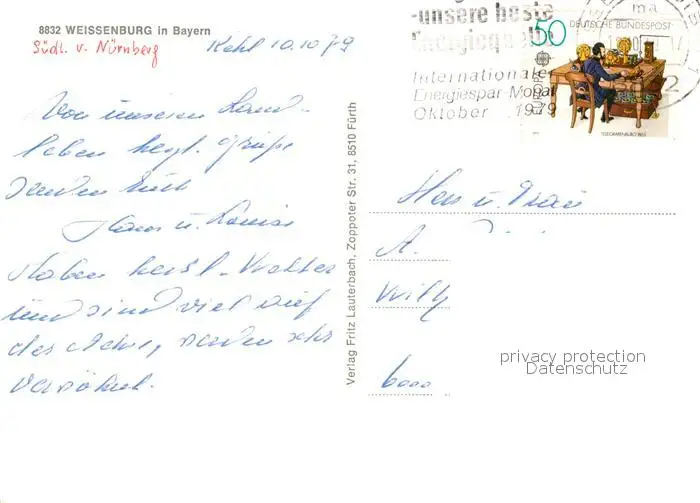 8832 WEISSENBURG in Bayern
Südl. v. Nürnberg
Kehl 10.10.79
Von unseren Land-
leben herzl. Grüße
senden Euch
Hans u. Louise
Haben herrl. Wetter
und sind viel auf
der Achse, werden sehr
verwöhnt.
Verlag Fritz Lauterbach, Zoppoter Str. 31, 8510 Fürth
-unsere beste
Energiequelle
Internationaler
Energiespar-Monat
Oktober 1979
50
DEUTSCHE BUNDESPOST
EUROPA
Herr u. Frau
A.
Willy
6000
privacy protection
Datenschutz